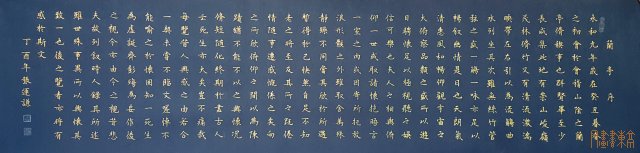 蘭亭序
永和九年歲在癸丑暮春
之初會於會稽山陰之蘭
亭脩禊事也群賢畢至少
長咸集此地有崇山峻嶺
茂林脩竹又有清流激湍
暎帶左右引以為流觴曲
水列坐其次雖無絲竹管
絃之盛一觴一詠亦足以
暢敘幽情是日也天朗氣
清惠風和暢仰觀宇宙之
大俯察品類之盛所以遊
目騁懷足以極視聽之娛
信可樂也夫人之相與俯
仰一世或取諸懷抱悟言
一室之內或因寄所託放
浪形骸之外雖趣舍萬殊
靜躁不同當其欣於所遇
暫得於己快然自足不知
老之將至及其所之既倦
情隨事遷感慨係之矣向
之所欣俛仰之間以為陳
跡猶不能不以之興懷況
脩短隨化終期於盡古人
云死生亦大矣豈不痛哉
每覽昔人興感之由若合
一契未嘗不臨文嗟悼不
能喻之於懷固知一死生
為虛誕齊彭殤為妄作後
之視今亦由今之視昔悲
夫故列敘時人錄其所述
雖世殊事異所以興懷其
致一也後之覽者亦將有
感於斯文
丁酉年張運謹